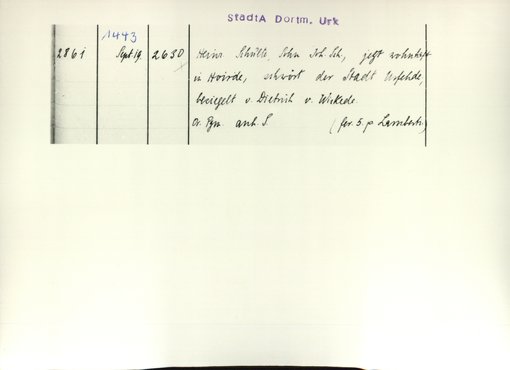 StadtA Dortm. Urk
1443
2861 Sept 19 2630 Heinr Schulte, Sohn Joh. Sch., jetzt wohnhaft
in Hoirde, schwört der Stadt Urfehde,
besiegelt v. Dietrich v. Wickede.
Or. Pgm. anh. S. (fer. 5. p Lamberti)